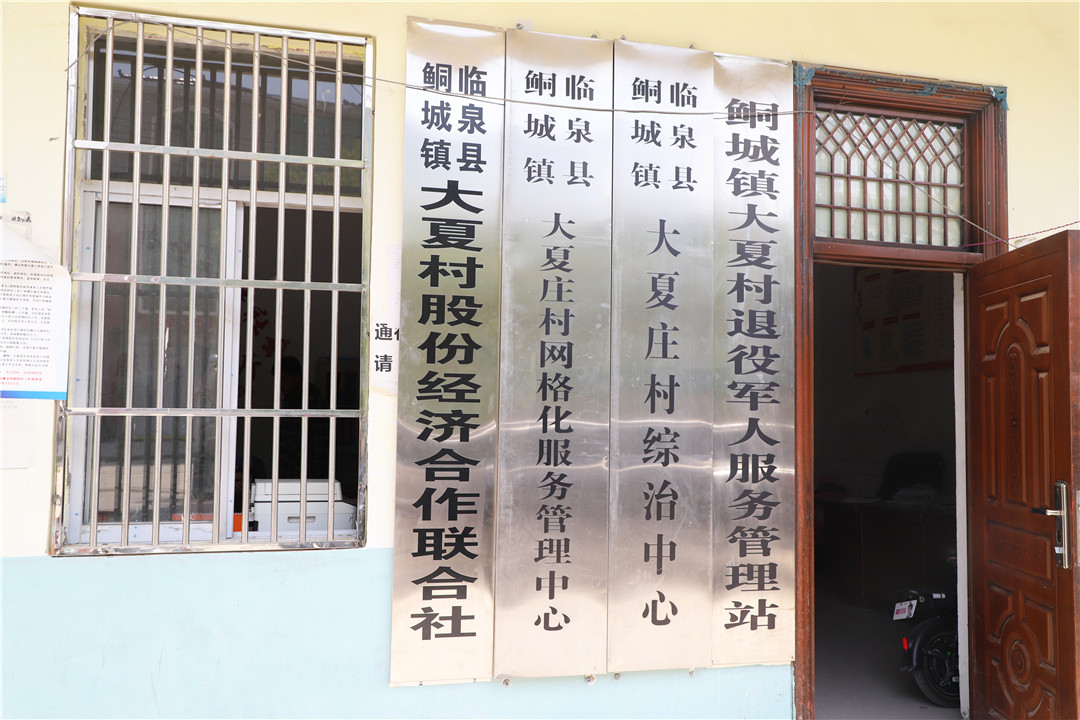 临泉县
鲖城镇
大夏村股份经济合作联合社
临泉县
鲖城镇
大夏庄村网格化服务管理中心
临泉县
鲖城镇
大夏庄村综治中心
鲖城镇大夏村退役军人服务管理站
通
请